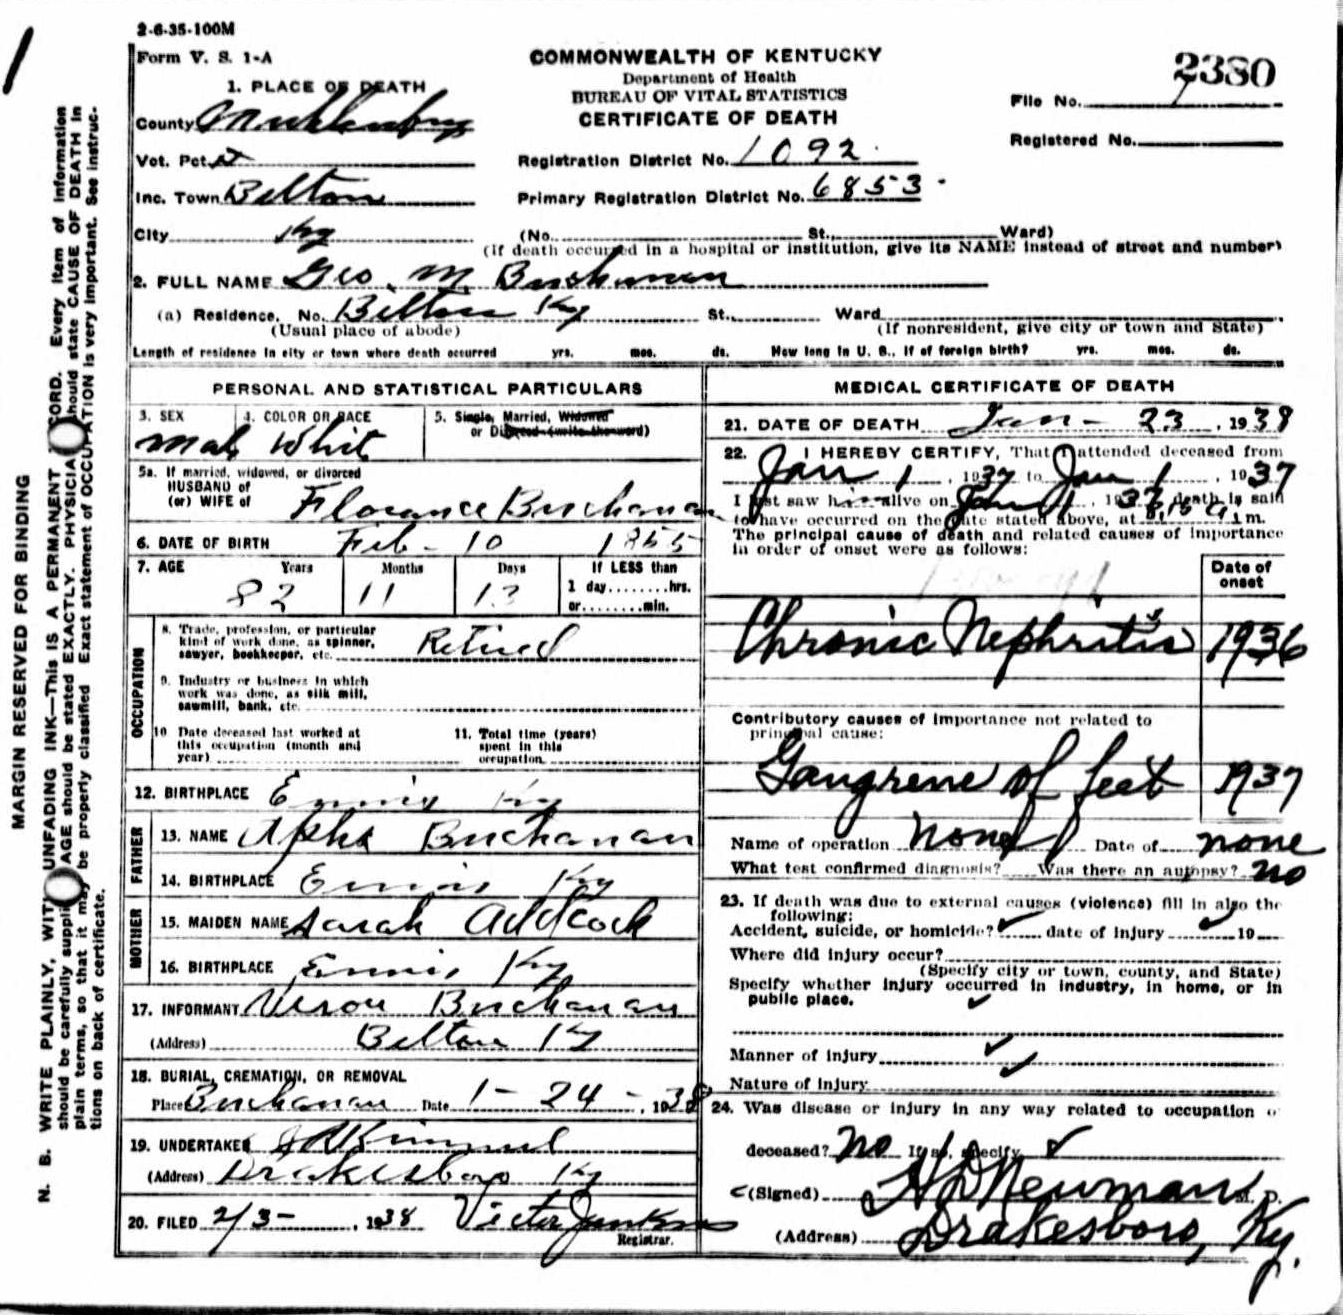 2-6-35-100M
Form V. S. 1-A
COMMONWEALTH OF KENTUCKY
Department of Health
BUREAU OF VITAL STATISTICS
CERTIFICATE OF DEATH
File No. 2380
Registered No.
1. PLACE OF DEATH
County Muhlenburg
Vot. Pct.
Inc. Town Belton
City Ky
Registration District No. 1092
Primary Registration District No. 6853
(No. St., Ward)
(If death occurred in a hospital or institution, give its NAME instead of street and number)
2. FULL NAME Geo. M. Buchanan
(a) Residence. No. Belton Ky St., Ward
(Usual place of abode) (If nonresident, give city or town and State)
Length of residence in city or town where death occurred yrs. mos. ds. How long in U. S., if of foreign birth? yrs. mos. ds.
PERSONAL AND STATISTICAL PARTICULARS
3. SEX 4. COLOR OR RACE 5. Single, Married, Widowed
or Divorced (write the word)
Male White
5a. If married, widowed, or divorced
HUSBAND of
(or) WIFE of Florance Buchanan
6. DATE OF BIRTH Feb - 10 1855
7. AGE Years Months Days If LESS than
82 11 13 1 day........hrs.
or........min.
OCCUPATION
8. Trade, profession, or particular
kind of work done, as spinner,
sawyer, bookkeeper, etc. Retired
9. Industry or business in which
work was done, as silk mill,
sawmill, bank, etc.
10 Date deceased last worked at
this occupation (month and
year)
11. Total time (years)
spent in this
occupation.
12. BIRTHPLACE Ennis Ky
FATHER
13. NAME Apha Buchanan
14. BIRTHPLACE Ennis Ky
MOTHER
15. MAIDEN NAME Sarah Addcock
16. BIRTHPLACE Ennis Ky
17. INFORMANT Veron Buchanan
(Address) Belton Ky
18. BURIAL, CREMATION, OR REMOVAL
Place Buchanan Date 1-24-, 1938
19. UNDERTAKER Kimmel
(Address) Drakesboro Ky
20. FILED 2/3- , 1938 Victor Jenkins
Registrar.
MEDICAL CERTIFICATE OF DEATH
21. DATE OF DEATH Jan - 23, 1938
22. I HEREBY CERTIFY, That I attended deceased from
Jan 1, 1937 to Jan 1, 1937
I last saw him alive on Jan 1, 1938, death is said
to have occurred on the date stated above, at 8,15 a.m.
The principal cause of death and related causes of importance
in order of onset were as follows:
Date of
onset
Chronic Nephritis 1936
Contributory causes of importance not related to
principal cause:
Gangrene of feet 1937
Name of operation none Date of none
What test confirmed diagnosis? Was there an autopsy? no
23. If death was due to external causes (violence) fill in also the
following:
Accident, suicide, or homicide? date of injury 19
Where did injury occur?
(Specify city or town, county, and State)
Specify whether injury occurred in industry, in home, or in
public place.
Manner of injury
Nature of injury
24. Was disease or injury in any way related to occupation o
deceased? No If so, specify
(Signed) H D Newman M. D.
(Address) Drakesboro, Ky.
MARGIN RESERVED FOR BINDING
N. B. WRITE PLAINLY, WITH UNFADING INK—This IS A PERMANENT RECORD. Every item of information
should be carefully supplied. AGE should be stated EXACTLY. PHYSICIA should state CAUSE OF DEATH in
plain terms, so that it may be properly classified. Exact statement of OCCUPATION is very important. See instruc-
tions on back of certificate.